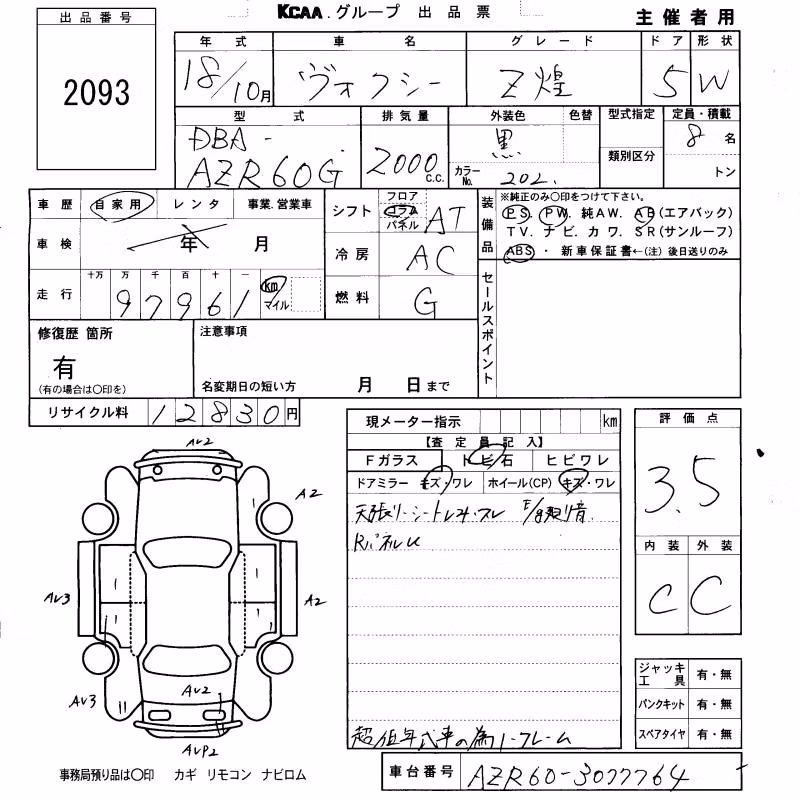 出品番号
2093
KCAA.グループ 出品票
主催者用
年式 車名 グレード ドア 形状
18/10月 ヴォクシー Z煌 5 W
型式 排気量 外装色 色替 型式指定 定員・積載
DBA-
AZR60G 2000 C.C. 黒 8 名
カラーNo. 202. 類別区分 トン
車歴 自家用 レンタ 事業.営業車
車検 年 月
走行 十万 万 千 百 十 一
97961 km マイル
シフト フロア コラム パネル AT
冷房 AC
燃料 G
装備品
※純正のみ〇印をつけて下さい。
PS. PW. 純AW. AB(エアバック)
TV. ナビ. カワ. SR(サンルーフ)
ABS ・ 新車保証書←(注) 後日送りのみ
セールスポイント
修復歴 箇所
有
(有の場合は〇印を)
注意事項
名変期日の短い方 月 日まで
リサイクル料 12830円
現メーター指示 km
【査定員記入】
Fガラス トビ石 ヒビワレ
ドアミラー キズ・ワレ ホイール(CP) キズ・ワレ
天張り・シートレヰ・スレ
RパネルU
超低年式車の為ノークレーム
評価点
3.5
内装 外装
C C
ジャッキ工具 有・無
パンクキット 有・無
スペアタイヤ 有・無
車台番号 AZR60-3077764
AU2
A2
AU3
A2
AU3
AU2
AUP2
事務局預り品は〇印 カギ リモコン ナビロム